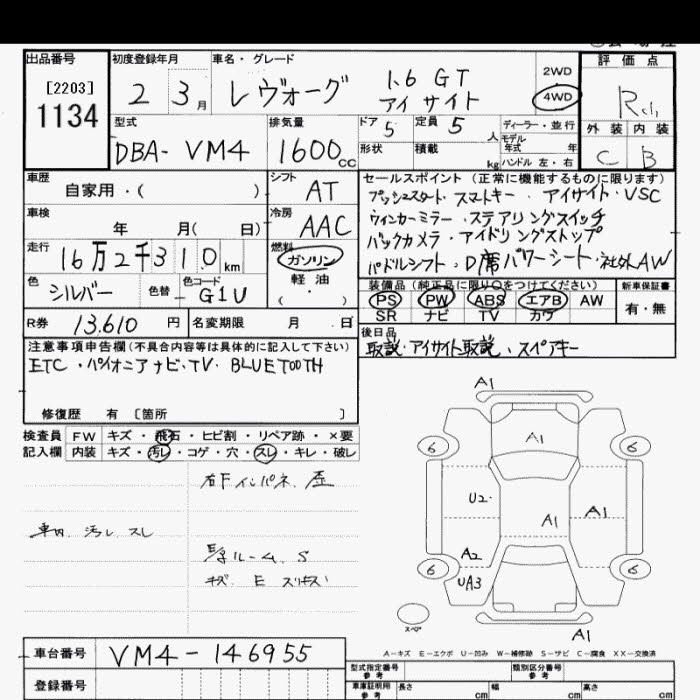 出品番号
[2203]
1134
初度登録年月
2 3月
車名・グレード
レヴォーグ 1.6 GT
アイサイト
2WD
4WD
評価点
R
外装 内装
C B
型式
DBA- VM4
排気量
1600cc
ドア 5
定員 5人
形状
積載 kg
ディーラー・並行
モデル年式 年
ハンドル 左・右
車歴
自家用・( )
シフト
AT
車検
年 月( 日)
冷房
AAC
走行
16万2千310km
燃料
ガソリン
軽油
( )
色
シルバー
色替
色コード
G1U
R券 13,610円
名変期限 月 日
セールスポイント(正常に機能するものに限ります)
プッシュスタート・スマートキー・アイサイト・VSC
ウィンカーミラー・ステアリングスイッチ
バックカメラ・アイドリングストップ
パドルシフト・D席パワーシート・社外AW
装備品(純正品に限り○をつけてください)
新車保証書
PS PW ABS エアB AW
SR ナビ TV カワ
有・無
後日品
取説・アイサイト取説、スペアキー
注意事項申告欄(不具合内容等は具体的に記入して下さい)
ETC・パイオニアナビ・TV・BLUETOOTH
修復歴 有 [箇所 ]
検査員記入欄
FW キズ・飛石・ヒビ割・リペア跡・×要
内装 キズ・汚レ・コゲ・穴・スレ・キレ・破レ
右Fインパネ、歪
車内 汚レ スレ
ルーム、S
キズ E スリキズ
A1
A1
6 6
U2 A1 A1
A2
6 6
UA3
スペア
A1
A-キズ E-エクボ U-凹み W-補修跡 S-サビ C-腐食 XX-交換済
車台番号
VM4-146955
登録番号
型式指定番号 参考
類別区分番号 参考
車庫証明用 参考
長さ cm 幅 cm 高さ cm